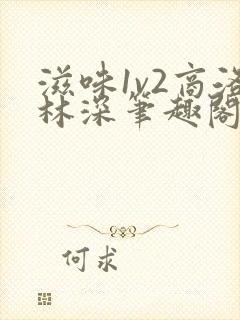 滋味1v2高洛
林深笔趣阁
何求